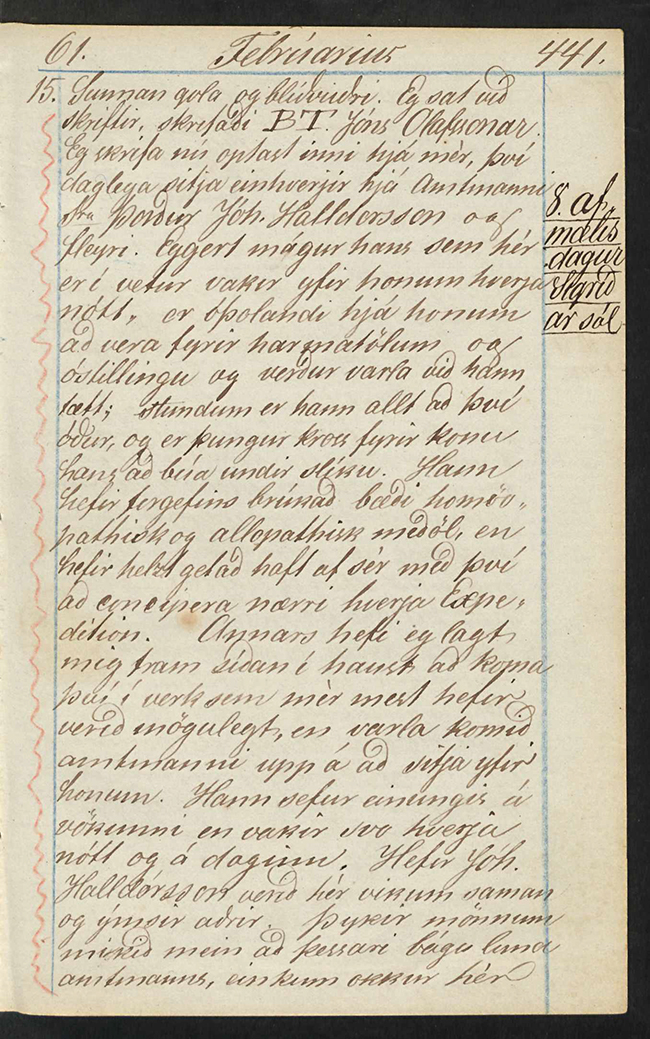 61. Febrúarius 441.
15. Sunnan gola og blíðviðri. Eg sat við
skriftir, skrifaði BT. Jóns Olafssonar.
Eg skrifa nú optast inni hjá mèr, því
daglega sitja einhverjir hjá Amtmanni
sra Þórður Jóh. Halldorsson og
fleyri. Eggert mágur hans sem hér
er í vetur vakir yfir honum hverja
nótt, er óþolandi hjá honum
að vera fyrir harmatölum og
óstillingu og verður varla við hann
tætt; stundum er hann allt að því
óður, og er þungur kross fyrir konu
hans að búa undir slíku. Hann
hefir forgefins brúkað bæði homöo„
pathisk og allopathisk meðöl, en
hefir helzt getað haft af sér með því
að concipera nærri hverja Expe„
dition. Annars hefi eg lagt
mig fram síðan í haust að koma
því í verk sem mér mest hefir
verið mögulegt, en varla komið
amtmanni upp á að sitja yfir
honum. Hann sefur einungis á
vökunni en vakir svo hverja
nótt og á daginn. Hefir Jóh.
Halldórsson verið hér vikum saman
og ýmsir aðrir. Þykir mönnum
mikið mein að þessari bágu lund
amtmanns, einkum okkur hér
8. af„
mælis
dagur
Sigríð
ar sál